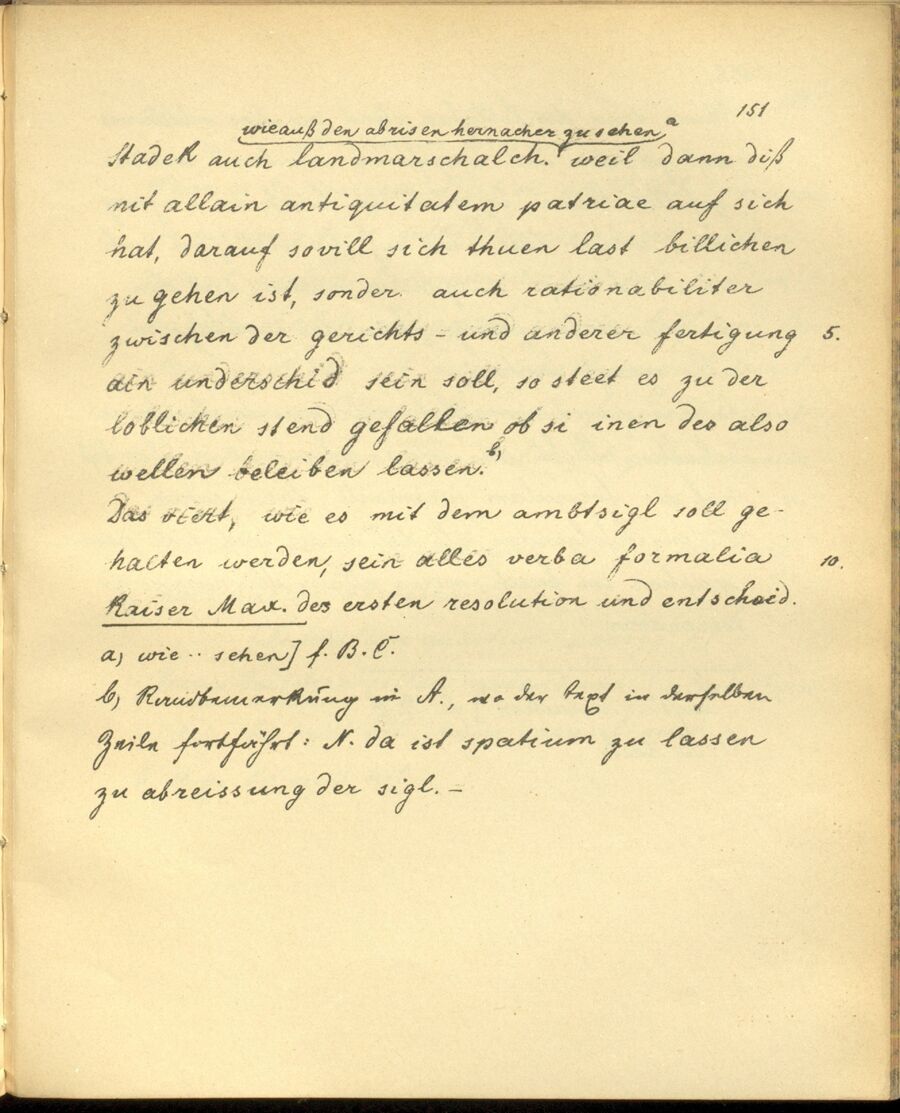 151
wie auß den abrisen hernacher zu sehen a
Stadek auch landmarschalch. weil dann diß
nit allain antiquitatem patriae auf sich
hat, darauf sovill sich thuen last billichen
zu gehen ist, sonder auch rationabiliter
zwischen der gerichts- und anderer fertigung 5.
ain underschid sein soll, so steet es zu der
loblichen stend gefallen ob si inen des also
wellen beleiben lassen. b)
Das viert, wie es mit dem ambtsigl soll ge-
halten werden, sein alles verba formalia 10.
Kaiser Max. des ersten resolution und entscheid.
a) wie .. sehen] f. B. C.
b) Randbemerkung in A., wo der Text in derselben
Zeile fortfährt: N. da ist spatium zu lassen
zu abreissung der sigl. –